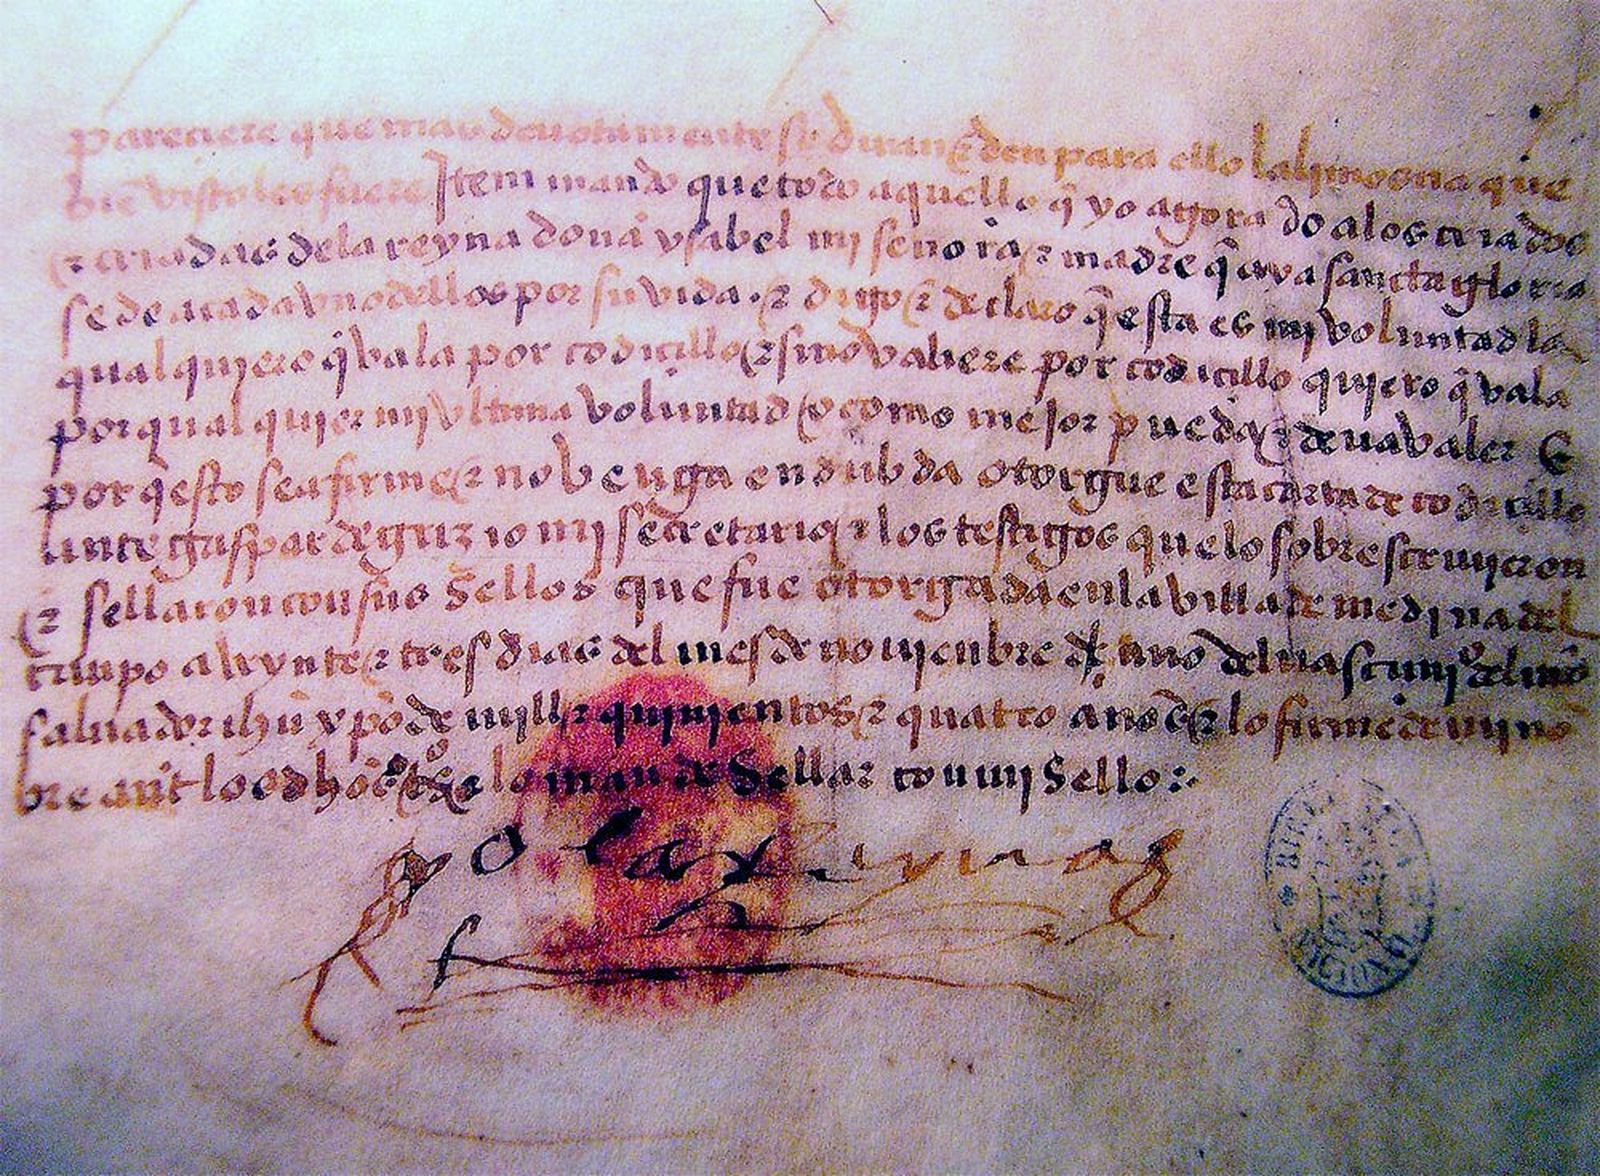 pareciere que mas deuotamente se diran ⁊ den para ello la lymosna que
biē visto les fuere Jtem mando que todo aquello q̄ yo agora do a los criados
⁊ criadas de la reyna doña ysabel mi señora ⁊ madre q̄ aya sancta gloria
se de a cada vno dellos por su vida · ⁊ digo ⁊ declaro q̄ esta es mi voluntad la
qual quiero q̄ vala por codicillo ⁊ si no valiere por codicillo quiero q̄ vala
por qualquier mi vltima voluntad o como mejor pueda ⁊ deua valer E
por q̄ esto sea firme ⁊ no venga en dubda otorgue esta carta de codicillo
ante gaspar de grizio mi secretario ⁊ los testigos que lo sobrescriuieron
⁊ sellaron con sus sellos que fue otorgada en la villa de medina del
campo a veynte ⁊ tres dias del mes de nouienbre del año del nascimiº del nrō
saluador ihū xpō de mill ⁊ quinientos ⁊ quatro años ⁊ lo firme de mi nō
bre ante los dhōs tºs ⁊ lo mande sellar con mi sello :~
yo la reyna
BIBLIOTECA NACIONAL